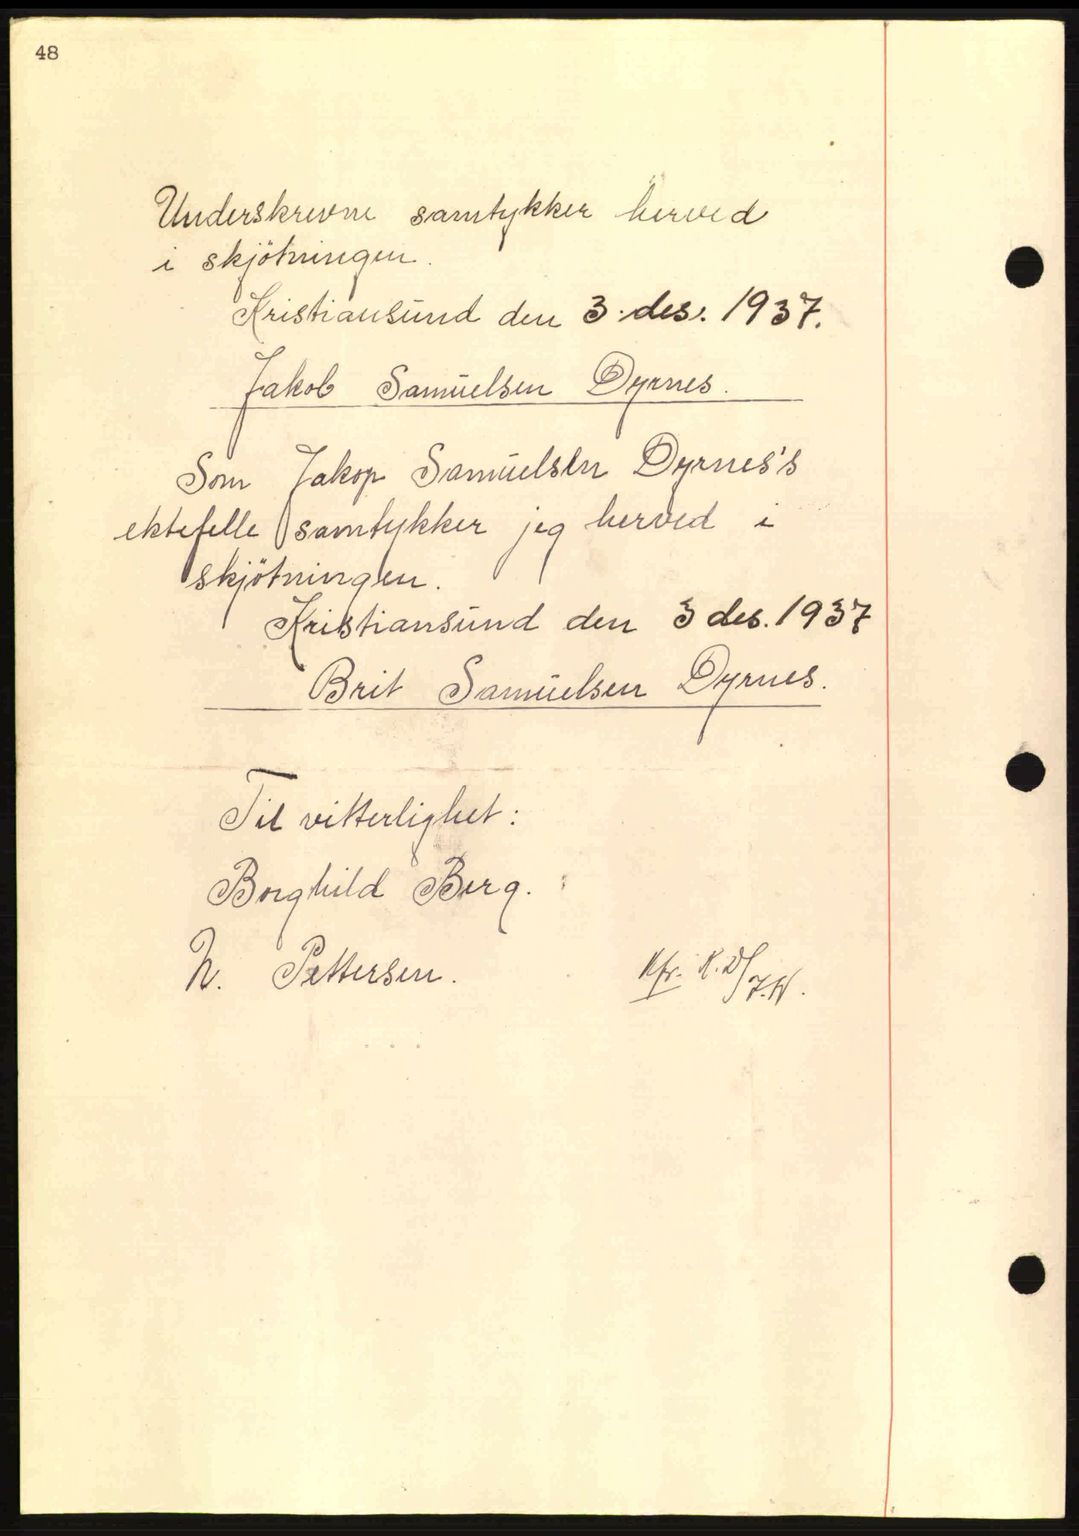 48
Underskrevne samtykker herved
i skjötningen.
Kristiansund den 3. des. 1937.
Jakob Samuelsen Dyrnes.
Som Jakop Samuelsen Dyrnes's
ektefelle samtykker jeg herved i
skjötningen.
Kristiansund den 3 des. 1937
Brit Samuelsen Dyrnes.
Til vitterlighet:
Borghild Berg.
N. Pettersen.
Kfr. K. D/J.W.